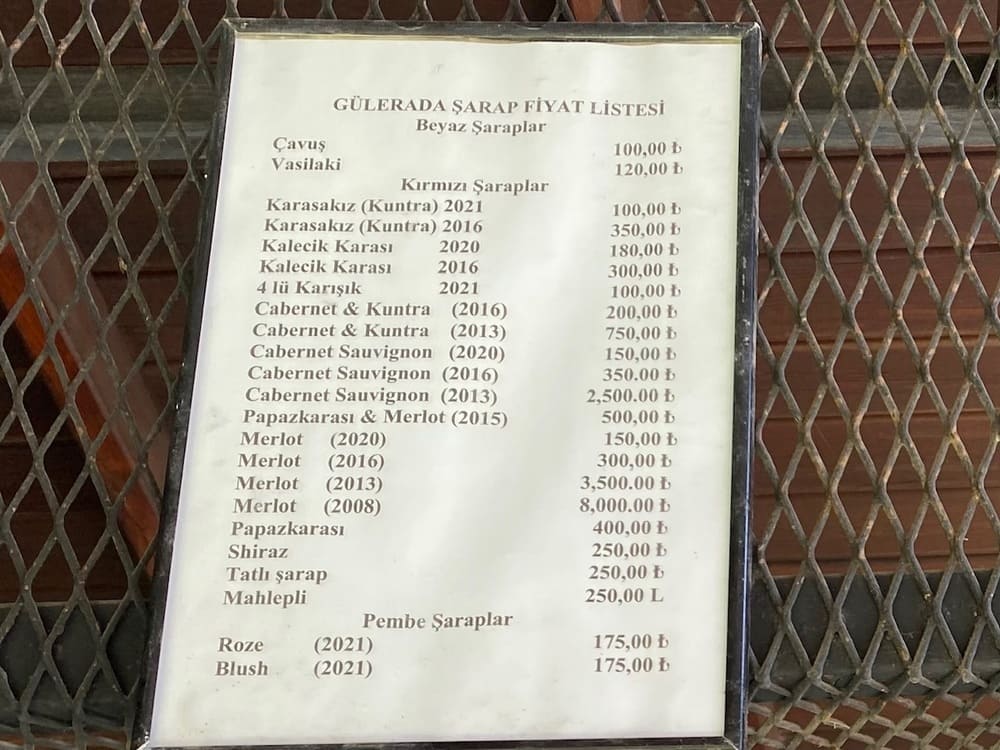 GÜLERADA ŞARAP FİYAT LİSTESİ
Beyaz Şaraplar
Çavuş 100,00 ₺
Vasilaki 120,00 ₺
Kırmızı Şaraplar
Karasakız (Kuntra) 2021 100,00 ₺
Karasakız (Kuntra) 2016 350,00 ₺
Kalecik Karası 2020 180,00 ₺
Kalecik Karası 2016 300,00 ₺
4 lü Karışık 2021 100,00 ₺
Cabernet & Kuntra (2016) 200,00 ₺
Cabernet & Kuntra (2013) 750,00 ₺
Cabernet Sauvignon (2020) 150,00 ₺
Cabernet Sauvignon (2016) 350.00 ₺
Cabernet Sauvignon (2013) 2,500.00 ₺
Papazkarası & Merlot (2015) 500,00 ₺
Merlot (2020) 150,00 ₺
Merlot (2016) 300,00 ₺
Merlot (2013) 3,500.00 ₺
Merlot (2008) 8,000.00 ₺
Papazkarası 400,00 ₺
Shiraz 250,00 ₺
Tatlı şarap 250,00 ₺
Mahlepli 250,00 L
Pembe Şaraplar
Roze (2021) 175,00 ₺
Blush (2021) 175,00 ₺